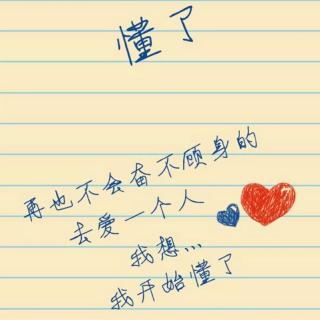 懂了
再也不会奋不顾身的
去爱一个人
我想...
我开始懂了